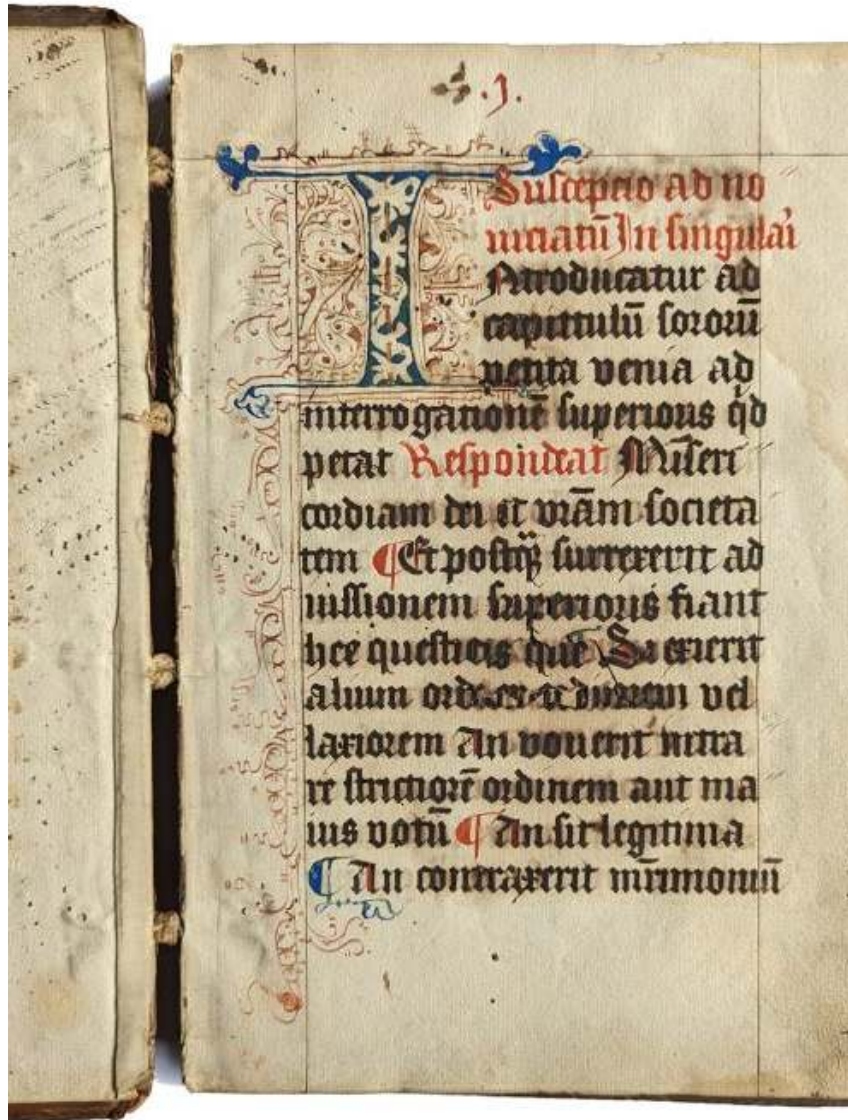 .J.
Susceptio ad no
uiciatū In singulari
Introducatur ad
capittulū sororū
petita venia ad
interrogationē superioris qͥd
petat Respondeat Miseri
cordiam dei et vrām societa
tem ¶ Et postqͣ surrexerit ad
iussionem superioris fiant
hee questiones que Si exierit
alium ordinem vel
laxiorem An vouerit intra
re strictiorē ordinem aut ma
ius votū ¶ An sit legitima
¶ An contraxerit mr̄imoniū